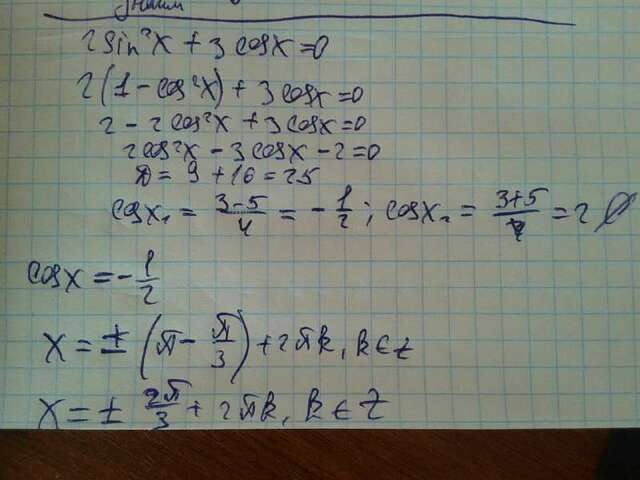 2sin²x + 3cosx = 0
2(1 - cos²x) + 3cosx = 0
2 - 2cos²x + 3cosx = 0
2cos²x - 3cosx - 2 = 0
D = 9 + 16 = 25
cosx₁ = (3-5)/4 = -1/2; cosx₂ = (3+5)/4 = 2 ∅
cosx = -1/2
x = ± (π - π/3) + 2πk, k ∈ Z
x = ± 2π/3 + 2πk, k ∈ Z